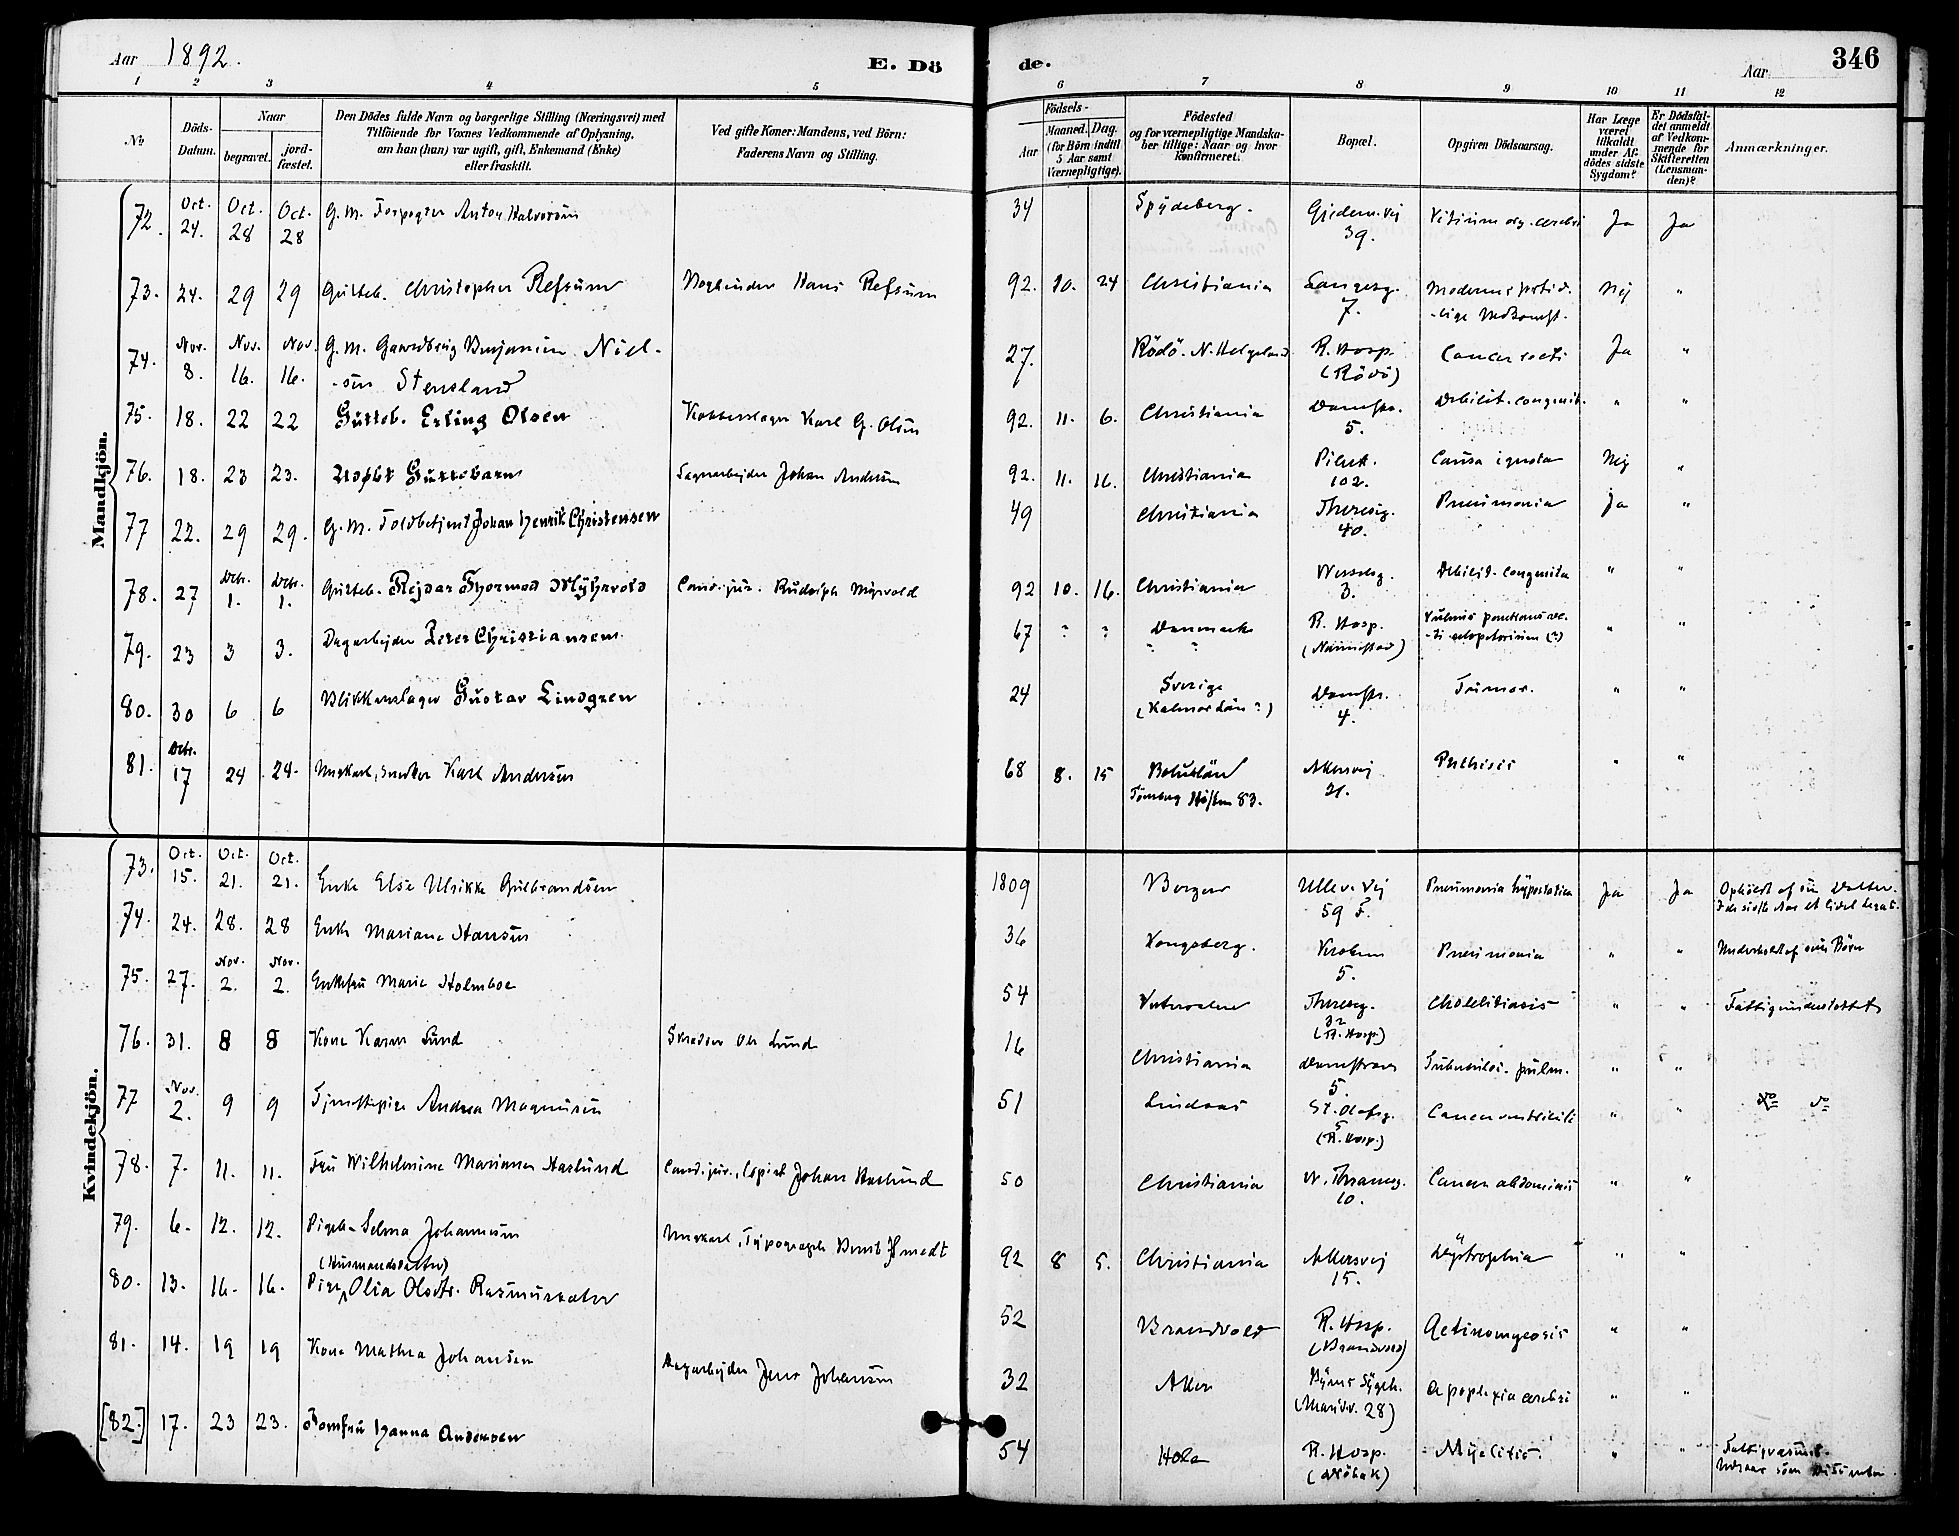 Aar 1892.
E. Dö
de.
Aar
346
1 2 3 4 5 6 7 8 9 10 11 12
No
Döds-
Datum.
Naar
begravet.
jord-
fæstet.
Den Dödes fulde Navn og borgerlige Stilling (Næringsvei) med
Tilföiende for Voxnes Vedkommende af Oplysning,
om han (hun) var ugift, gift, Enkemand (Enke)
eller fraskilt.
Ved gifte Koner: Mandens, ved Börn:
Faderens Navn og Stilling.
Födsels-
Aar
Maaned. Dag.
(for Börn indtil
5 Aar samt
Værnepligtige).
Födested
og for værnepligtige Mandska-
ber tillige: Naar og hvor
konfirmeret.
Bopæl.
Opgiven Dödsaarsag.
Har Læge
været
tilkaldt
under Af-
dödes sidste
Sygdom?
Er Dödsfal-
det anmeldt
af Vedkom-
mende for
Skifteretten
(Lensman-
den)?
Anmærkninger.
Mandkjön.
72. Oct. 24. Oct. 28 Oct. 28 G. M. Anton Halvorsen 34 Spydeberg. 39. Vitium org. cerebri Ja Ja
73. 24. 29 29 Gutteb. Christopher Refsum Bogbinder Hans Refsum 92. 10. 24 Christiania Langesg. 7. Nej "
74. Nov. 8. Nov. 16. Nov. 16. G. M. Benjamin Niel-
-sen Stensland 27. Rödö. N. Helgeland. R. Hosp. (Rödö) Cancer recti Ja "
75. 18. 22 22 Gutteb. Erling Olsen Kobberslager Karl G. Olsen 92. 11. 6. Christiania Damstr. 5. Debilit. congenit. " "
76. 18. 23 23. Udøbt Guttebarn Sagarbejder Johan Andersen 92. 11. 16. Christiania Pilest. 102. Causa ignota Nej "
77 22. 29 29. G. M. Toldbetjent Johan Henrik Christensen 49 Christiania Theresesg. 40. Pneumonia Ja "
78. 27 Dcbr. 1. Dcbr. 1. Gutteb. Rejdar Thormod Myhrvold Cand. jur. Rudolph Myrvold 92 10. 16. Christiania Wesselsg. 3. Debilit. congenita " "
79. 23 3 3. Dagarbejder Peter Christiansen 67 ? ? Danmark R. Hosp. " "
80. 30 6 6 Blikkenslager Gustav Lindgren 24 Sverige (Kalmar Län?) Damstr. 4. Tumor. " "
81. Dcbr. 17 24 24. Ungkarl, Snedker Karl Andersen 68 8. 15 Bohuslän
Tönsberg Hösten 83. Akersvej 21. Phthisis " "
Kvindekjön.
73. Oct. 15. Oct. 21. Oct. 21. Enke Else Ulrikke Gulbrandsen 1809 Bergen Ullev. Vej 59 F. Pneumonia hypostatica Ja Ja Opholdt af sin Datter.
74. 24. 28. 28 Enke Mariane Hansen 36 Kongsberg. 5. Pneumonia " " Underholdt af sine Börn
75. 27. Nov. 2. Nov. 2. Enkefru Marie Holmboe 54 Theresesg. 32 (R. Hosp.) Cholelitiasis " " Fattigunderstöttet
76. 31. 8 8 Kone Karen Lund Skræder Ole Lund 16 Christiania Damstræde 5. Tuberkulos. pulm. " "
77 Nov. 2. 9 9 Tjenestepige Andrea Magnusen 51 Lindaas St. Olafsg. 5 (R. Hosp.) Cancer umbilici " " do do
78. 7. 11. 11. Fru Wilhelmine Mariane Haslund Cand. jur., Copist Johan Haslund 50 Christiania N. Thranesg. 10. Cancer abdominis " "
79. 6. 12. 12. Pigeb. Selma Johannesen Ungkarl, Typograph Bernt Smedt 92 8 5. Christiania Akersvej 15. Dystrophia " "
80. 13. 16. 16. (Husmandsdatter)
Pige Olia Olsdtr. Rasmusdatter 52 Brandvold R. Hosp. (Brandvold) Actinomycosis " "
81. 14. 19 19 Kone Mathea Johansen Dagarbejder Jens Johansen 32 Aker Byens Sygeh. (Maridv. 28) Apoplexia cerebri " "
[82.] 17. 23 23. Jomfru Hanna Andersen 54 Hole R. Hosp. (Dröbak) Myelitis " "